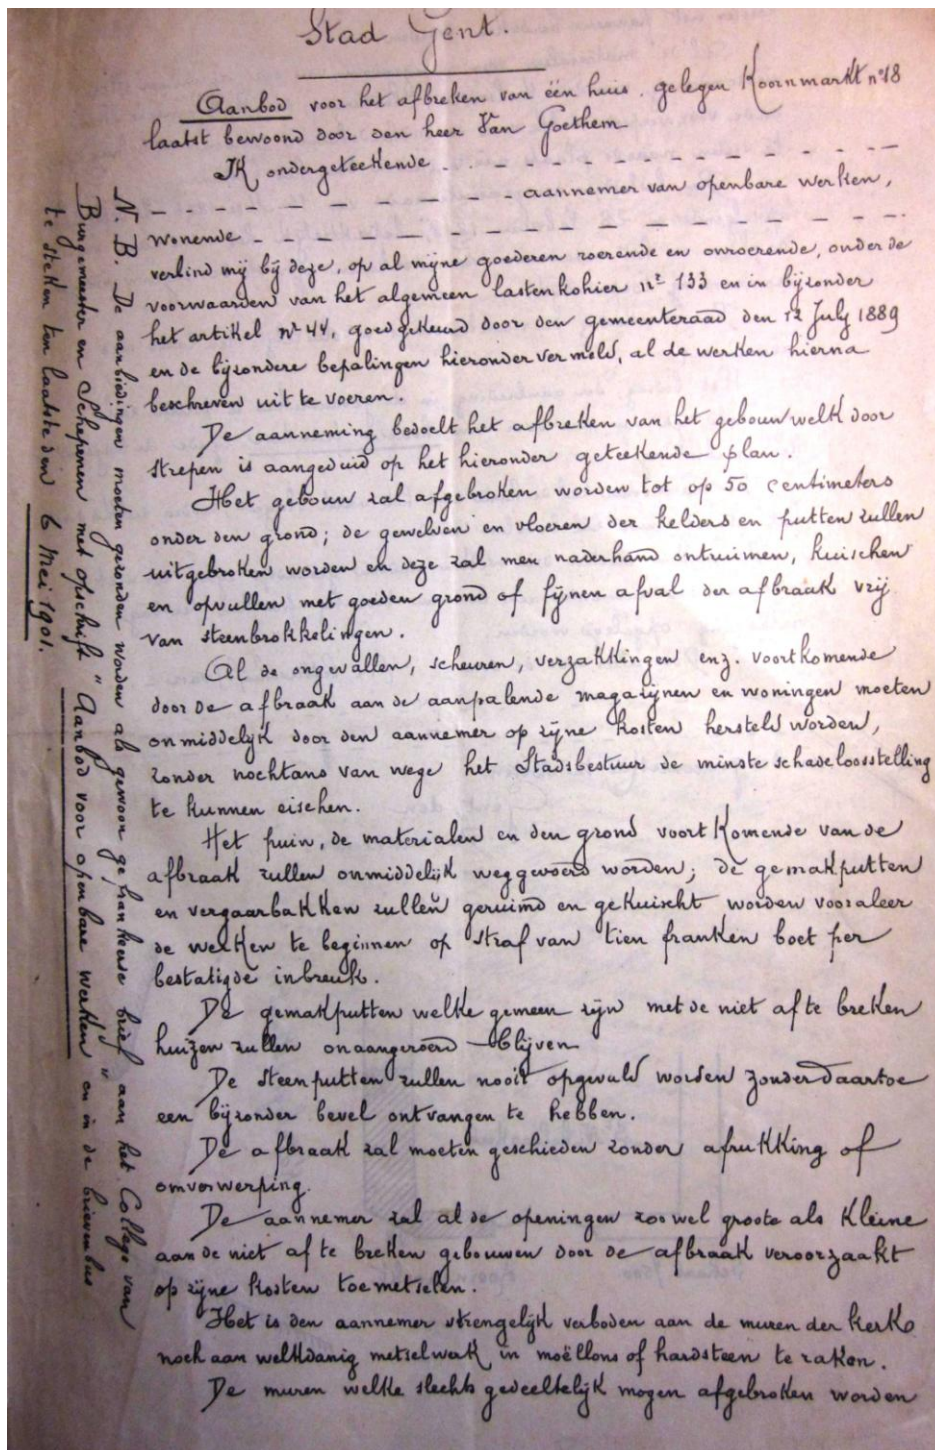 Stad Gent.
Aanbod voor het afbreken van één huis. gelegen Koornmarkt nº 18
laatst bewoond door den heer Van Goethem
IK ondergeteekende . _ _ _ _ _ _ _ _ _ _ _ _ _
_ _ _ _ _ _ _ _ _ _ aannemer van openbare werken,
wonende _ _ _ _ _ _ _ _ _ _ _ _ _ _ _ _ _.
verbind mij bij deze, op al mijne goederen roerende en onroerende, onder de
voorwaarden van het algemeen lastenkohier nr 133 en in bijzonder
het artikel nº 44, goedgekeurd door den gemeenteraad den 12 July 1889
en de bijzondere bepalingen hieronder vermeld, al de werken hierna
beschreven uit te voeren.
De aanneming bedoelt het afbreken van het gebouw welk door
strepen is aangeduid op het hieronder geteekende plan.
Het gebouw zal afgebroken worden tot op 50 centimeters
onder den grond; de gewelven en vloeren der kelders en putten zullen
uitgebroken worden en deze zal men naderhand ontruimen, kuischen
en opvullen met goeden grond of fijnen afval der afbraak vrij
van steenbrokkelingen.
Al de ongevallen, scheuren, verzakkingen enz. voortkomende
door de afbraak aan de aanpalende magazijnen en woningen moeten
onmiddelijk door den aannemer op zijne kosten hersteld worden,
zonder nochtans van wege het Stadsbestuur de minste schadeloosstelling
te kunnen eischen.
Het puin, de materialen en den grond voortkomende van de
afbraak zullen onmiddelijk weggevoerd worden; de gemakputten
en vergaarbakken zullen geruimd en gekuischt worden vooraleer
de werken te beginnen op straf van tien franken boet per
bestatigde inbreuk.
De gemakputten welke gemeen zijn met de niet af te breken
huizen zullen onaangeroerd blijven
De steenputten zullen nooit opgevuld worden zonder daartoe
een bijzonder bevel ontvangen te hebben.
De afbraak zal moeten geschieden zonder afrukking of
omverwerping.
De aannemer zal al de openingen zoowel groote als kleine
aan de niet af te breken gebouwen door de afbraak veroorzaakt
op zijne kosten toemetselen.
Het is den aannemer strengelijk verboden aan de muren der kerk
noch aan welkdanig metselwerk in moëllons of hardsteen te raken.
De muren welke slechts gedeeltelijk mogen afgebroken worden
N.B. De aanbiedingen moeten gezonden worden als gewoon gefrankeerde brief aan het College van
Burgemeester en Schepenen met opschrift "Aanbod voor openbare werken" en in de brievenbus
te steken ten laatste den 6 Mei 1901.